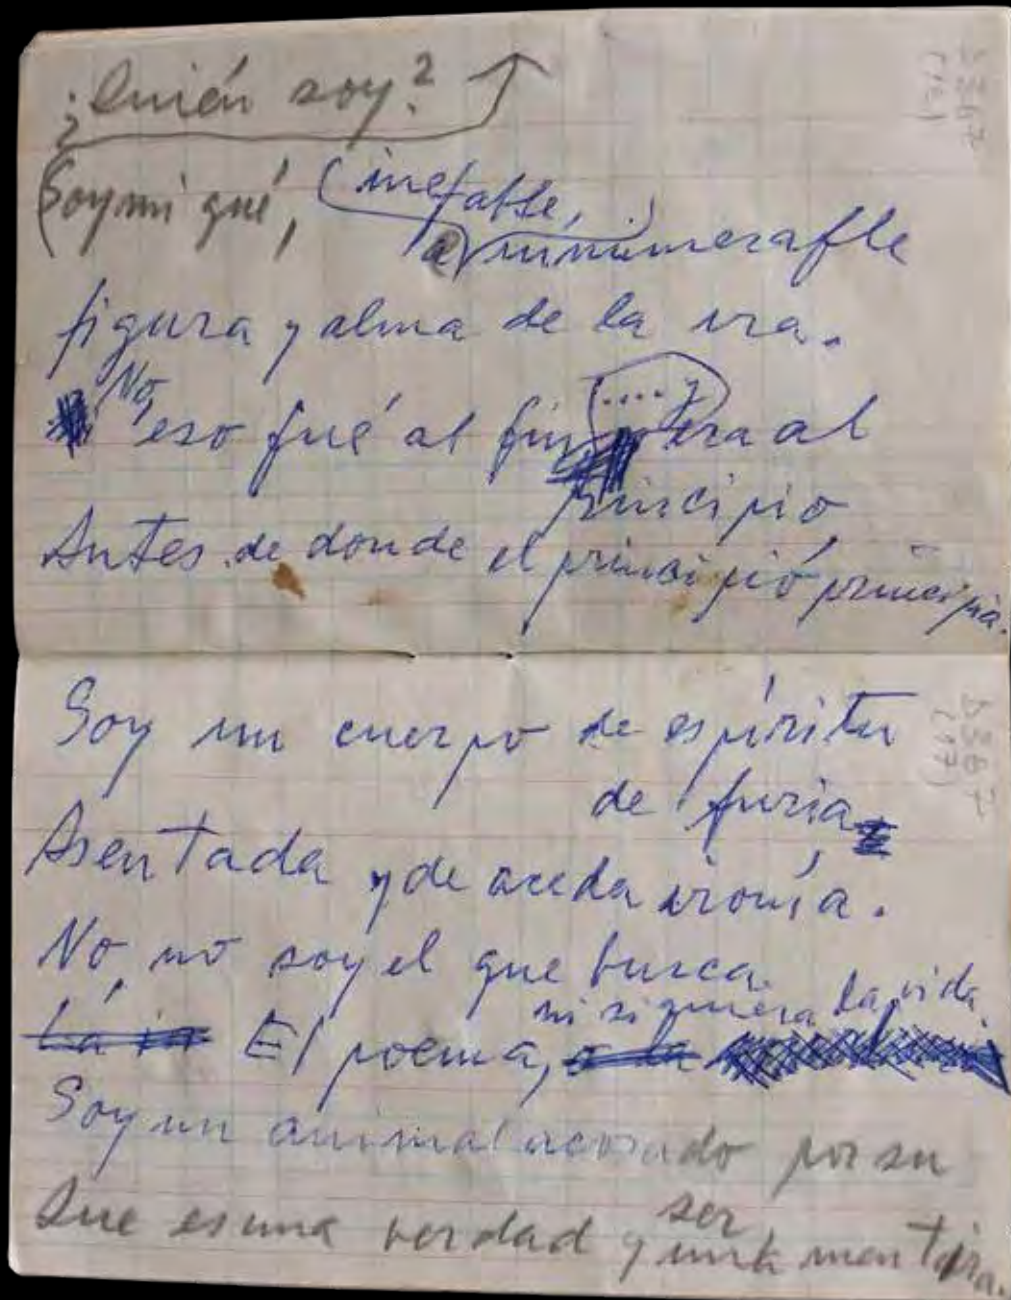 ¿Quién soy?
Soy mi qué, (inefable,
innumerable
figura y alma de la ira.
No, eso fué al fin y era al
(....)
principio,
Antes de donde el principió principia.
Soy un cuerpo de espíritu
de furia
Asentada y de aceda ironía.
No, no soy el que busca
ni siquiera la vida.
El poema,
Soy un animal acosado por su
ser,
Que es una verdad y una mentira.